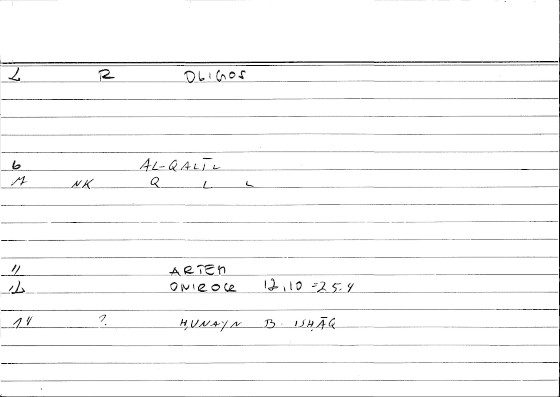 2 R OLIGOS
6 AL-QALĪL
M NK Q L L
11 ARTEM
12 ONIROCR 12,10 = 25.4
14 ? ḤUNAYN B. ISḤĀQ